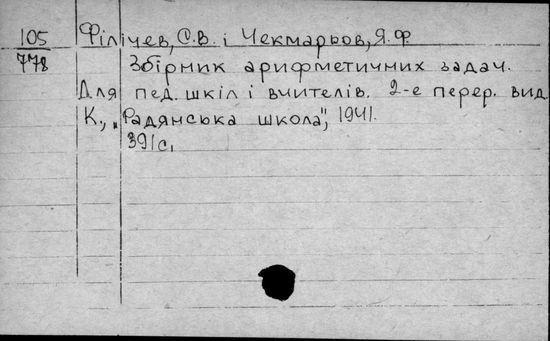 105
778
Філічев, С.В. і Чекмарьов, Я.Ф.
Збірник арифметичних задач.
Для пед. шкіл і вчителів. 2-е перер. вид.
К., „Радянська школа", 1941.
391с.